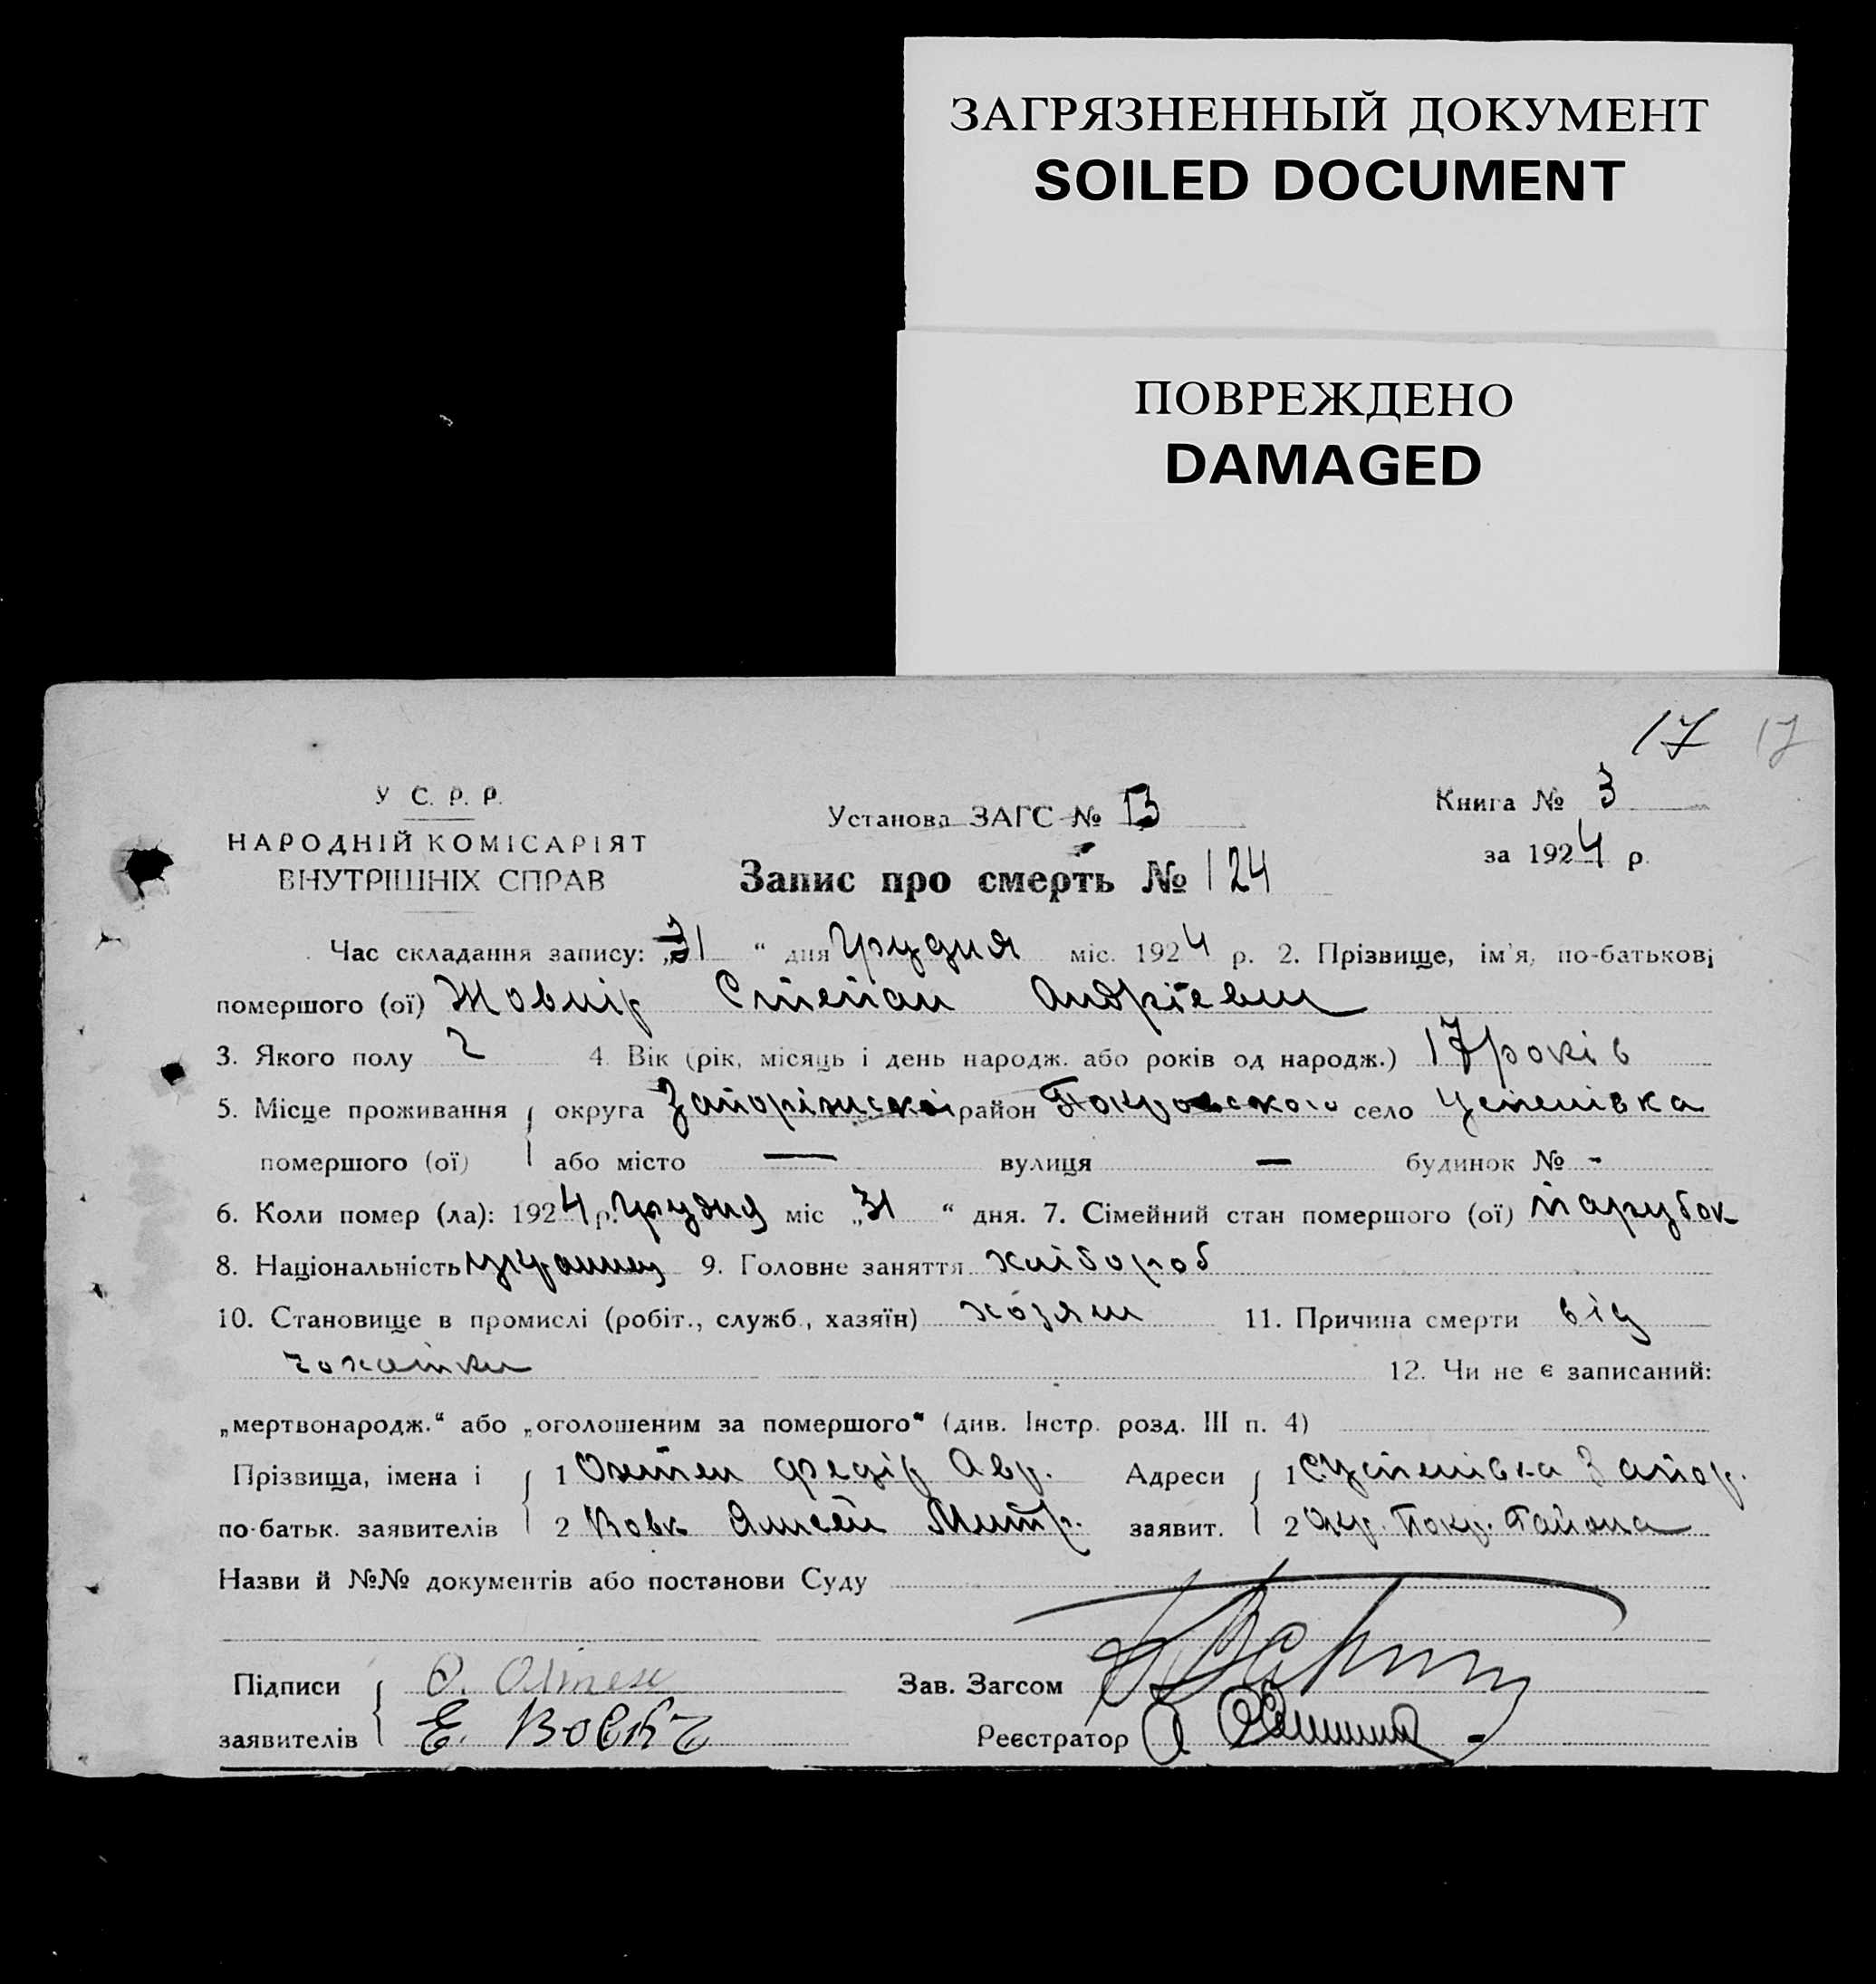 ЗАГРЯЗНЕННЫЙ ДОКУМЕНТ
SOILED DOCUMENT
ПОВРЕЖДЕНО
DAMAGED
17 17
У С. Р. Р.
НАРОДНІЙ КОМІСАРІЯТ
ВНУТРІШНІХ СПРАВ
Установа ЗАГС №
Запис про смерть № 124
Книга № 3
за 1924 р.
Час складання запису: „31 “ дня Грудня міс. 1924 р. 2. Прізвище, ім'я, по-батькові
помершого (ої) Жовнір Степан Андрієвич
3. Якого полу Ч 4. Вік (рік, місяць і день народж. або років од народж.) 17 років
5. Місце проживання округа Запоріжської район Покровського село Успенівка
помершого (ої) або місто — вулиця — будинок № -
6. Коли помер (ла): 1924 р. Грудня міс „31 “ дня. 7. Сімейний стан помершого (ої) парубок
8. Національність українец 9. Головне заняття хлібороб
10. Становище в промислі (робіт., служб., хазяїн) хозяін 11. Причина смерти від
чохотки 12. Чи не є записаний:
„мертвонародж.“ або „оголошеним за помершого“ (див. Інстр. розд. III п. 4)
Прізвища, імена і 1 Федір Авр. Адреси 1 с. Успенівка Запор.
по-батьк. заявителів 2 Вовк Митр. заявит. 2 Окр. Покр. Района
Назви й №№ документів або постанови Суду
Підписи Зав. Загсом
заявителів Е. Вовкъ Реєстратор